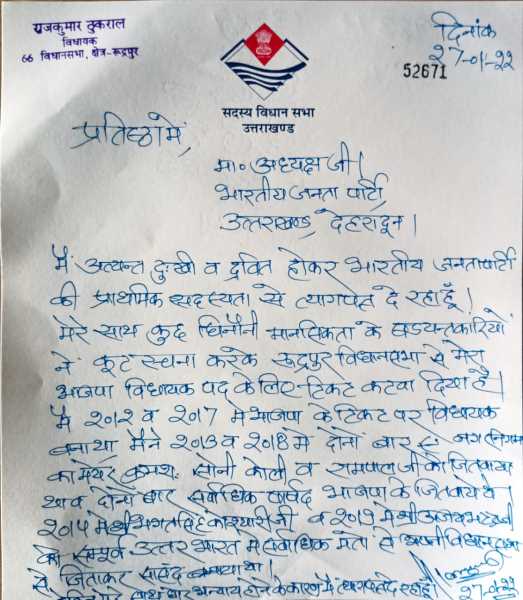 राजकुमार ठुकराल
विधायक
66 विधानसभा, क्षेत्र-रूद्रपुर
दिनांक
27-01-22
52671
सदस्य विधान सभा
उत्तराखण्ड
प्रतिष्ठा में,
मा० अध्यक्ष जी।
भारतीय जनता पार्टी
उत्तराखण्ड, देहरादून।
मैं अत्यन्त दुःखी व द्रवित होकर भारतीय जनता पार्टी
की प्राथमिक सदस्यता से त्यागपत्र दे रहा हूँ।
मेरे साथ कुछ घिनौनी मानसिकता के षडयन्त्रकारियों
ने कूट रचना करके रूद्रपुर विधानसभा से मेरा
भाजपा विधायक पद के लिए टिकट कटवा दिया है।
मैं 2012 व 2017 में भाजपा के टिकट पर विधायक
बना था मैंने 2013 व 2018 में दोनों बार नगर निगम
का मेयर क्रमश: सोनी कोली व रामपाल जी को जितवाया
था व दोनों बार सर्वाधिक पार्षद भाजपा के जितवाये थे।
2014 में श्री भगत सिंह कोश्यारी जी व 2019 में श्री अजय भट्ट जी
को सम्पूर्ण उत्तर भारत में सर्वाधिक मतों से अपनी विधानसभा
से जिताकर सांसद बनाया था।
साथ बार अन्याय होने के कारण मैं त्यागपत्र दे रहा हूँ।
27-01-22